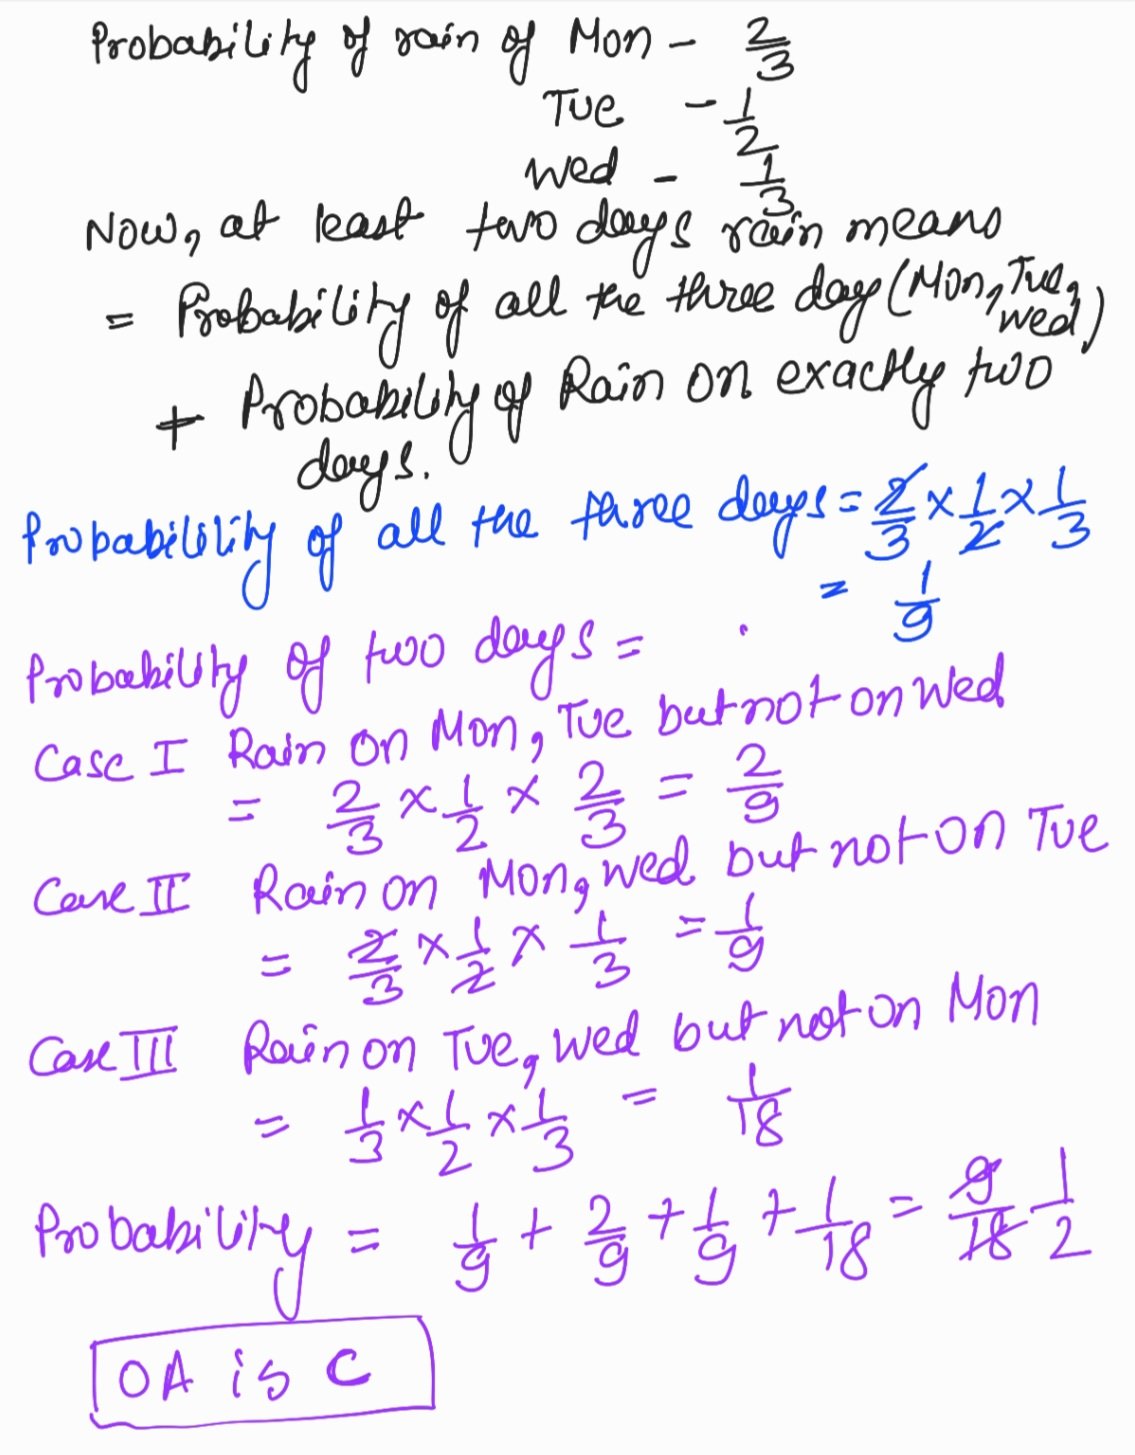 Probability of rain of Mon - 2/3
Tue - 1/2
Wed - 1/3
Now, at least two days rain means
= Probability of all the three day (Mon, Tue, wed)
+ Probability of Rain on exactly two
days.
Probabilility of all the three days = 2/3 × 1/2 × 1/3
= 1/9
Probability of two days =
Case I Rain on Mon, Tue but not on Wed
= 2/3 × 1/2 × 2/3 = 2/9
Case II Rain on Mon, wed but not on Tue
= 2/3 × 1/2 × 1/3 = 1/9
Case III Rain on Tue, wed but not on Mon
= 1/3 × 1/2 × 1/3 = 1/18
Probability = 1/9 + 2/9 + 1/9 + 1/18 = 9/18 1/2
OA is C